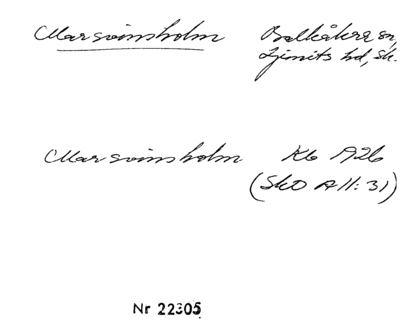 Marsvinsholm Balkåkra sn,
Ljunits hd, Sk.
Marsvinsholm Kb 1926
(SkO A 11: 31)
Nr 22305